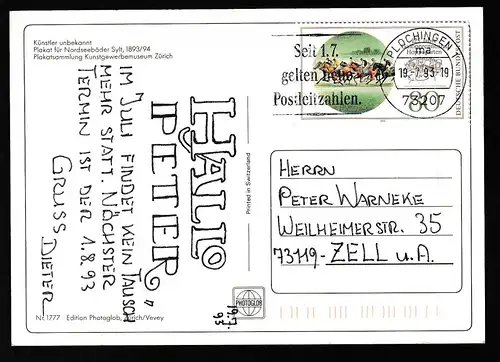 Künstler unbekannt
Plakat für Nordseebäder Sylt, 1893/94
Plakatsammlung Kunstgewerbemuseum Zürich
HALLO
PETER,
IM JULI FINDET KEIN TAUSCH
MEHR STATT. NÄCHSTER
TERMIN IST DER 1.8.93
GRUSS DIETER
19.7.
93
Nr. 1777 Edition Photoglob, Zürich/Vevey
Printed in Switzerland
PHOTOGLOB
Seit 1.7.
gelten neue
Postleitzahlen.
PLOCHINGEN 1
ma
19.-7.93-19
73207
80
DEUTSCHE BUNDESPOST
HERRN
PETER WARNEKE
WEILHEIMERSTR. 35
73119- ZELL u.A.